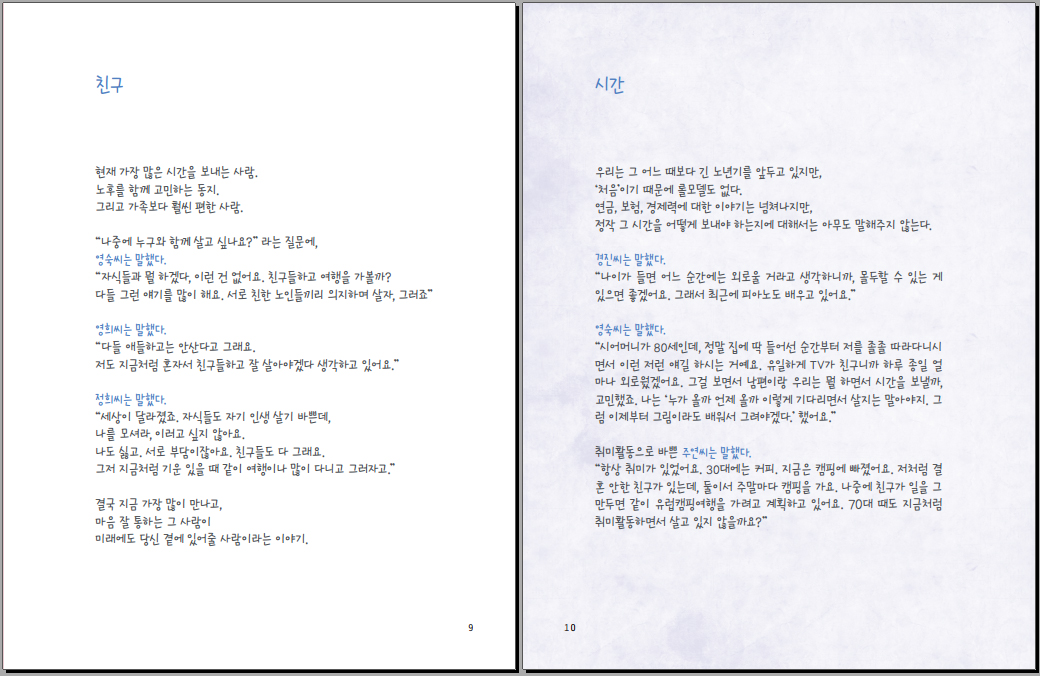 친구
현재 가장 많은 시간을 보내는 사람.
노후를 함께 고민하는 동지.
그리고 가족보다 훨씬 편한 사람.
“나중에 누구와 함께 살고 싶나요?” 라는 질문에,
영숙씨는 말했다.
“자식들과 뭘 하겠다, 이런 건 없어요. 친구들하고 여행을 가볼까?
다들 그런 얘기를 많이 해요. 서로 친한 노인들끼리 의지하며 살자, 그러죠”
영희씨는 말했다.
“다들 애들하고는 안산다고 그래요.
저도 지금처럼 혼자서 친구들하고 잘 살아야겠다 생각하고 있어요.”
정희씨는 말했다.
“세상이 달라졌죠. 자식들도 자기 인생 살기 바쁜데,
나를 모셔라, 이러고 싶지 않아요.
나도 싫고. 서로 부담이잖아요. 친구들도 다 그래요.
그저 지금처럼 기운 있을 때 같이 여행이나 많이 다니고 그러자고.”
결국 지금 가장 많이 만나고,
마음 잘 통하는 그 사람이
미래에도 당신 곁에 있어줄 사람이라는 이야기.
9
시간
우리는 그 어느 때보다 긴 노년기를 앞두고 있지만,
‘처음’이기 때문에 롤모델도 없다.
연금, 보험, 경제력에 대한 이야기는 넘쳐나지만,
정작 그 시간을 어떻게 보내야 하는지에 대해서는 아무도 말해주지 않는다.
경진씨는 말했다.
“나이가 들면 어느 순간에는 외로울 거라고 생각하니까, 몰두할 수 있는 게
있으면 좋겠어요. 그래서 최근에 피아노도 배우고 있어요.”
영숙씨는 말했다.
“시어머니가 80세인데, 정말 집에 딱 들어선 순간부터 저를 졸졸 따라다니시
면서 이런 저런 얘길 하시는 거예요. 유일하게 TV가 친구니까 하루 종일 얼
마나 외로웠겠어요. 그걸 보면서 남편이랑 우리는 뭘 하면서 시간을 보낼까,
고민했죠. 나는 ‘누가 올까 언제 올까 이렇게 기다리면서 살지는 말아야지. 그
럼 이제부터 그림이라도 배워서 그려야겠다.’ 했어요.”
취미활동으로 바쁜 주연씨는 말했다.
“항상 취미가 있었어요. 30대에는 커피. 지금은 캠핑에 빠졌어요. 저처럼 결
혼 안한 친구가 있는데, 둘이서 주말마다 캠핑을 가요. 나중에 친구가 일을 그
만두면 같이 유럽캠핑여행을 가려고 계획하고 있어요. 70대 때도 지금처럼
취미활동하면서 살고 있지 않을까요?”
10